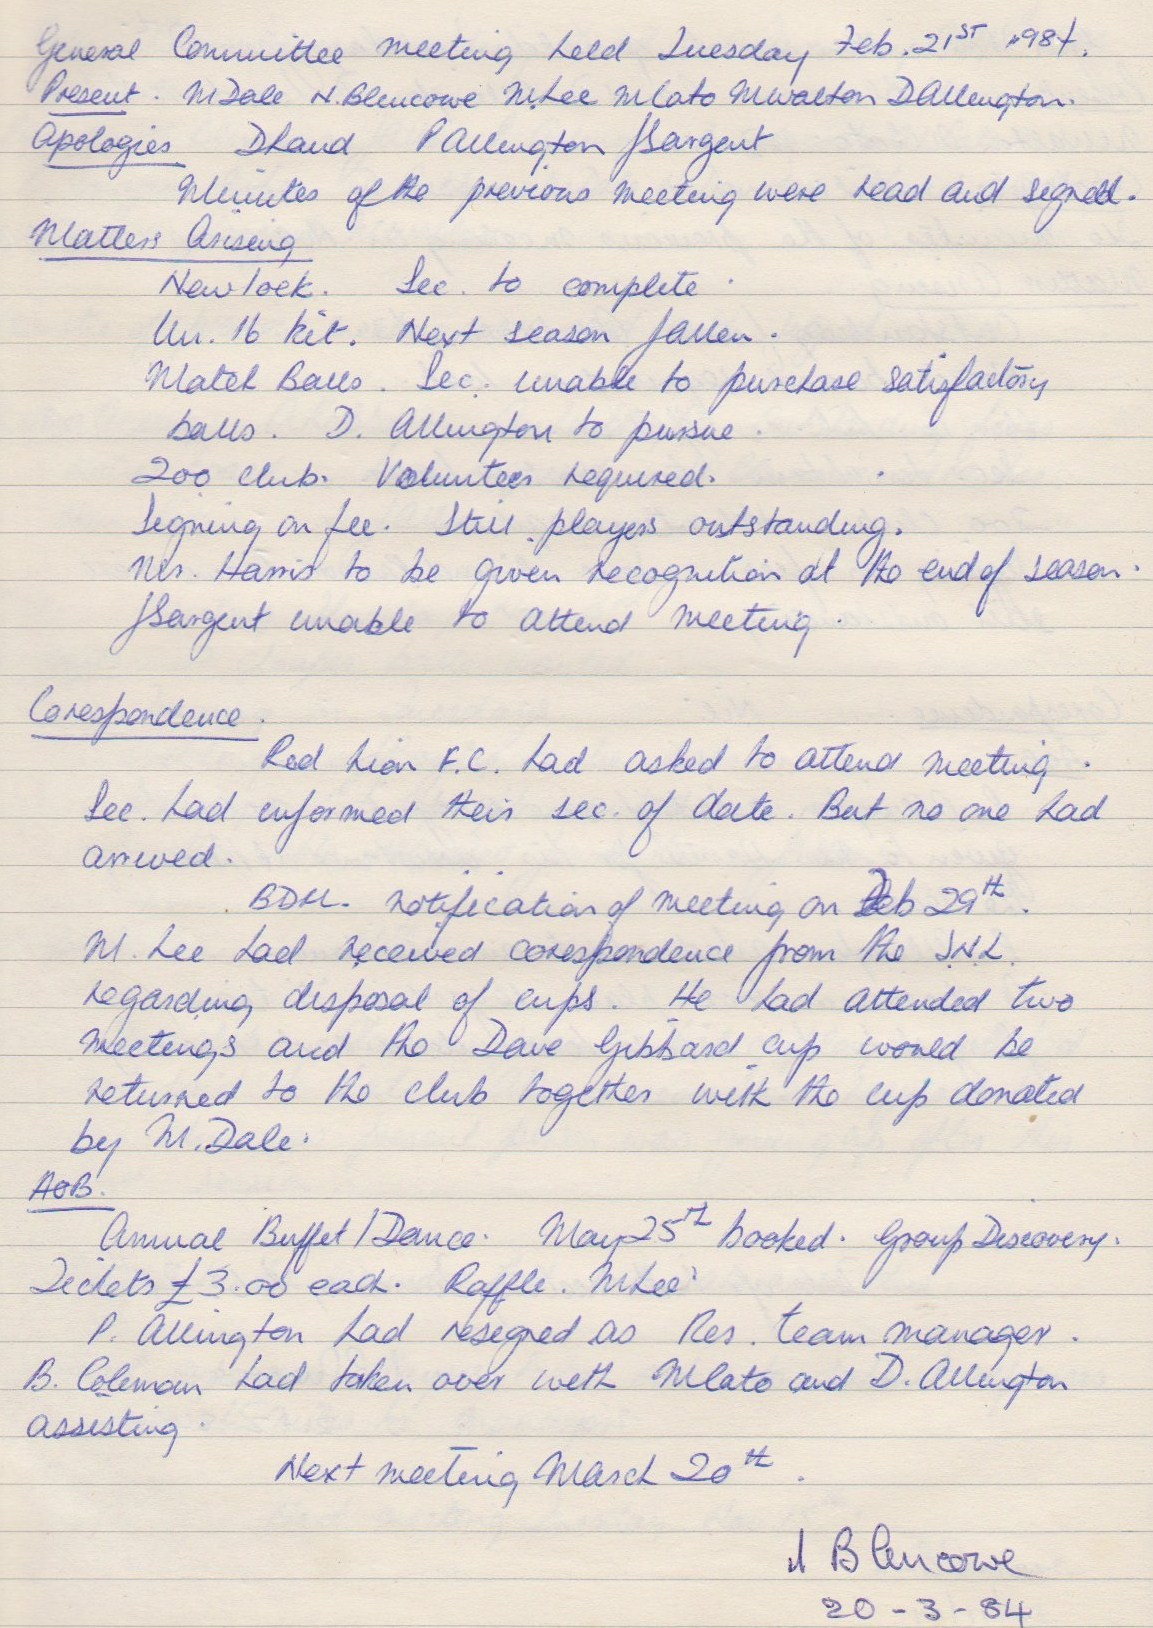 General Committee meeting held Tuesday Feb. 21ST 1984.
Present. M Dale N. Blencowe M. Lee M Cato M Walton D Allington.
Apologies D Land P Allington J Sargent
Minutes of the previous meeting were read and signed.
Matters Arising
New lock. Sec. to complete.
Un. 16 kit. Next season J Allen.
Match Balls. Sec. unable to purchase satisfactory
balls. D. Allington to pursue.
200 club. Volunteer required.
Signing on fee. Still players outstanding.
Mr. Harris to be given recognition at the end of season.
J Sargent unable to attend meeting.
Corespondence.
Red Lion F.C. had asked to attend meeting.
Sec. had informed their sec. of date. But no one had
arrived.
BDM. notification of meeting on Feb 29th.
M. Lee had received corespondence from the
regarding disposal of cups. He had attended two
meetings and the Dave Gibbard cup would be
returned to the club together with the cup donated
by M. Dale.
AOB.
Annual Buffet/Dance. May 25th booked. Group Discovery.
Tickets £3.00 each. Raffle. M Lee
P. Allington had resigned as Res. team manager.
B. Coleman had taken over with M Cato and D. Allington
assisting.
Next meeting March 20th.
N Blencowe
20-3-84